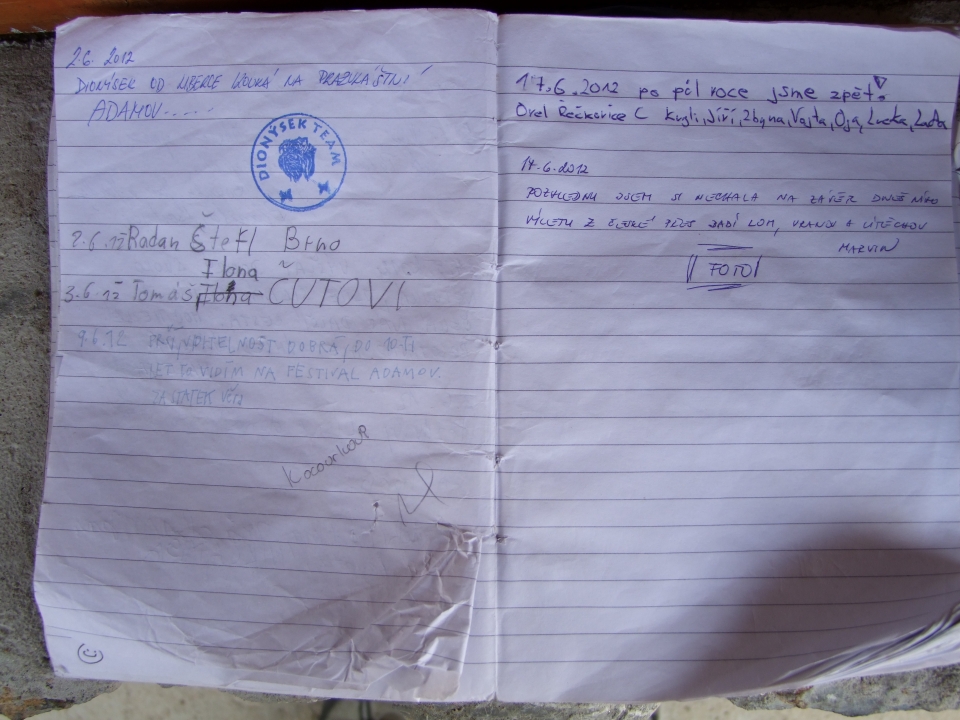 2.6. 2012
DIONÝSEK OD LIBERCE KOUKÁ NA
ADAMOV.....
DIONÝSEK TEAM
2.6.12 Radan Štefl Brno
Ilona
3.6.12 Tomáš Ilona ČUTOVI
9.6.12 DOBRÁ, DO 10-TI
LET TO VIDÍM NA FESTIVAL ADAMOV.
Kocourkov
17.6.2012 po půl roce jsme zpět!
Orel Řečkovice C Kugli, Jiří, Zbyna, Vojta, Oja, Lucka, Lucka
17.6.2012
POZVLEDNU JSEM SI NECHALA NA ZÁVĚR DNEŠNÍHO
VÝLETU Z BÍLOVIC PŘES BABÍ LOM, VRANOV A ÚTĚCHOV
MARVIN
FOTO